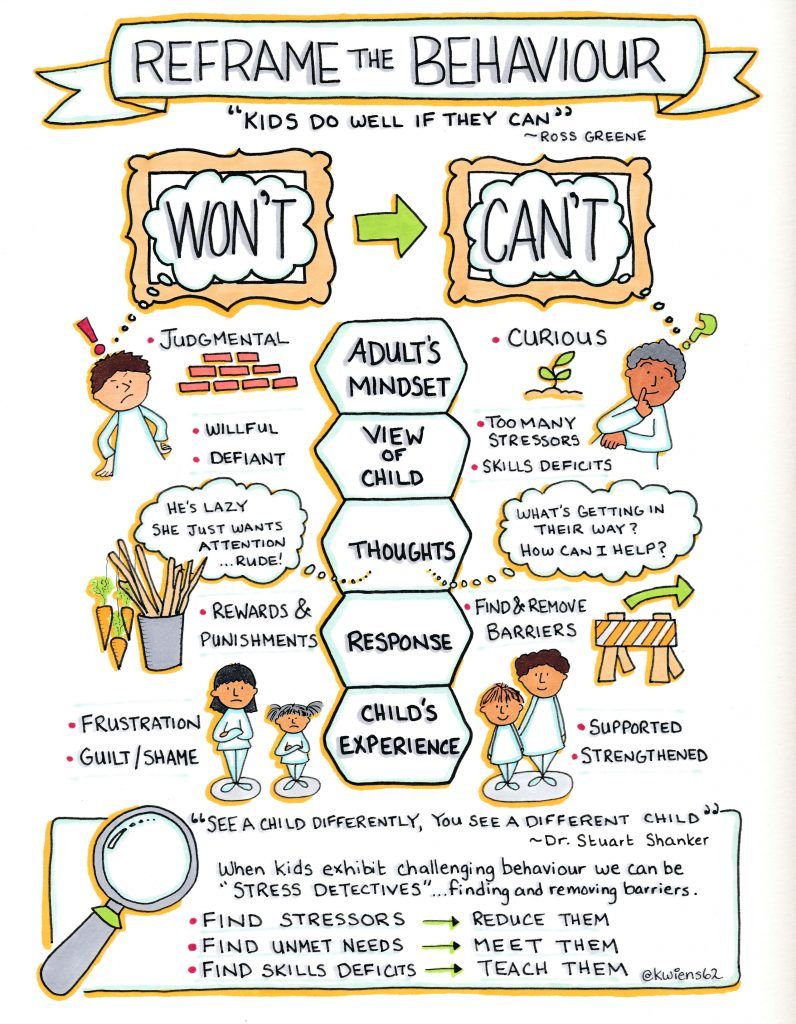 REFRAME THE BEHAVIOUR
"KIDS DO WELL IF THEY CAN"
~ROSS GREENE
WON'T
CAN'T
!
?
• JUDGMENTAL
ADULT'S
MINDSET
• CURIOUS
• WILLFUL
• DEFIANT
VIEW
OF
CHILD
• TOO MANY
STRESSORS
• SKILLS DEFICITS
HE'S LAZY
SHE JUST WANTS
ATTENTION
...RUDE!
THOUGHTS
WHAT'S GETTING IN
THEIR WAY?
HOW CAN I HELP?
• REWARDS &
PUNISHMENTS
RESPONSE
• FIND & REMOVE
BARRIERS
• FRUSTRATION
• GUILT/SHAME
CHILD'S
EXPERIENCE
• SUPPORTED
• STRENGTHENED
"SEE A CHILD DIFFERENTLY, YOU SEE A DIFFERENT CHILD"
~Dr. Stuart Shanker
When kids exhibit challenging behaviour we can be
"STRESS DETECTIVES"...finding and removing barriers.
• FIND STRESSORS → REDUCE THEM
• FIND UNMET NEEDS → MEET THEM
• FIND SKILLS DEFICITS → TEACH THEM
@kwiens62